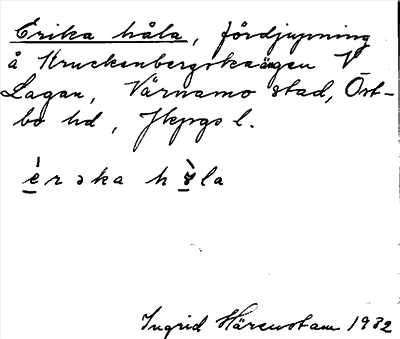 Erika håla, fördjupning
å Kruckenbergska ägen V
Lagan, Värnamo stad, Öst-
bo hd, Jkpgs l.
èrəka hòla
Ingrid Härenstam 1932